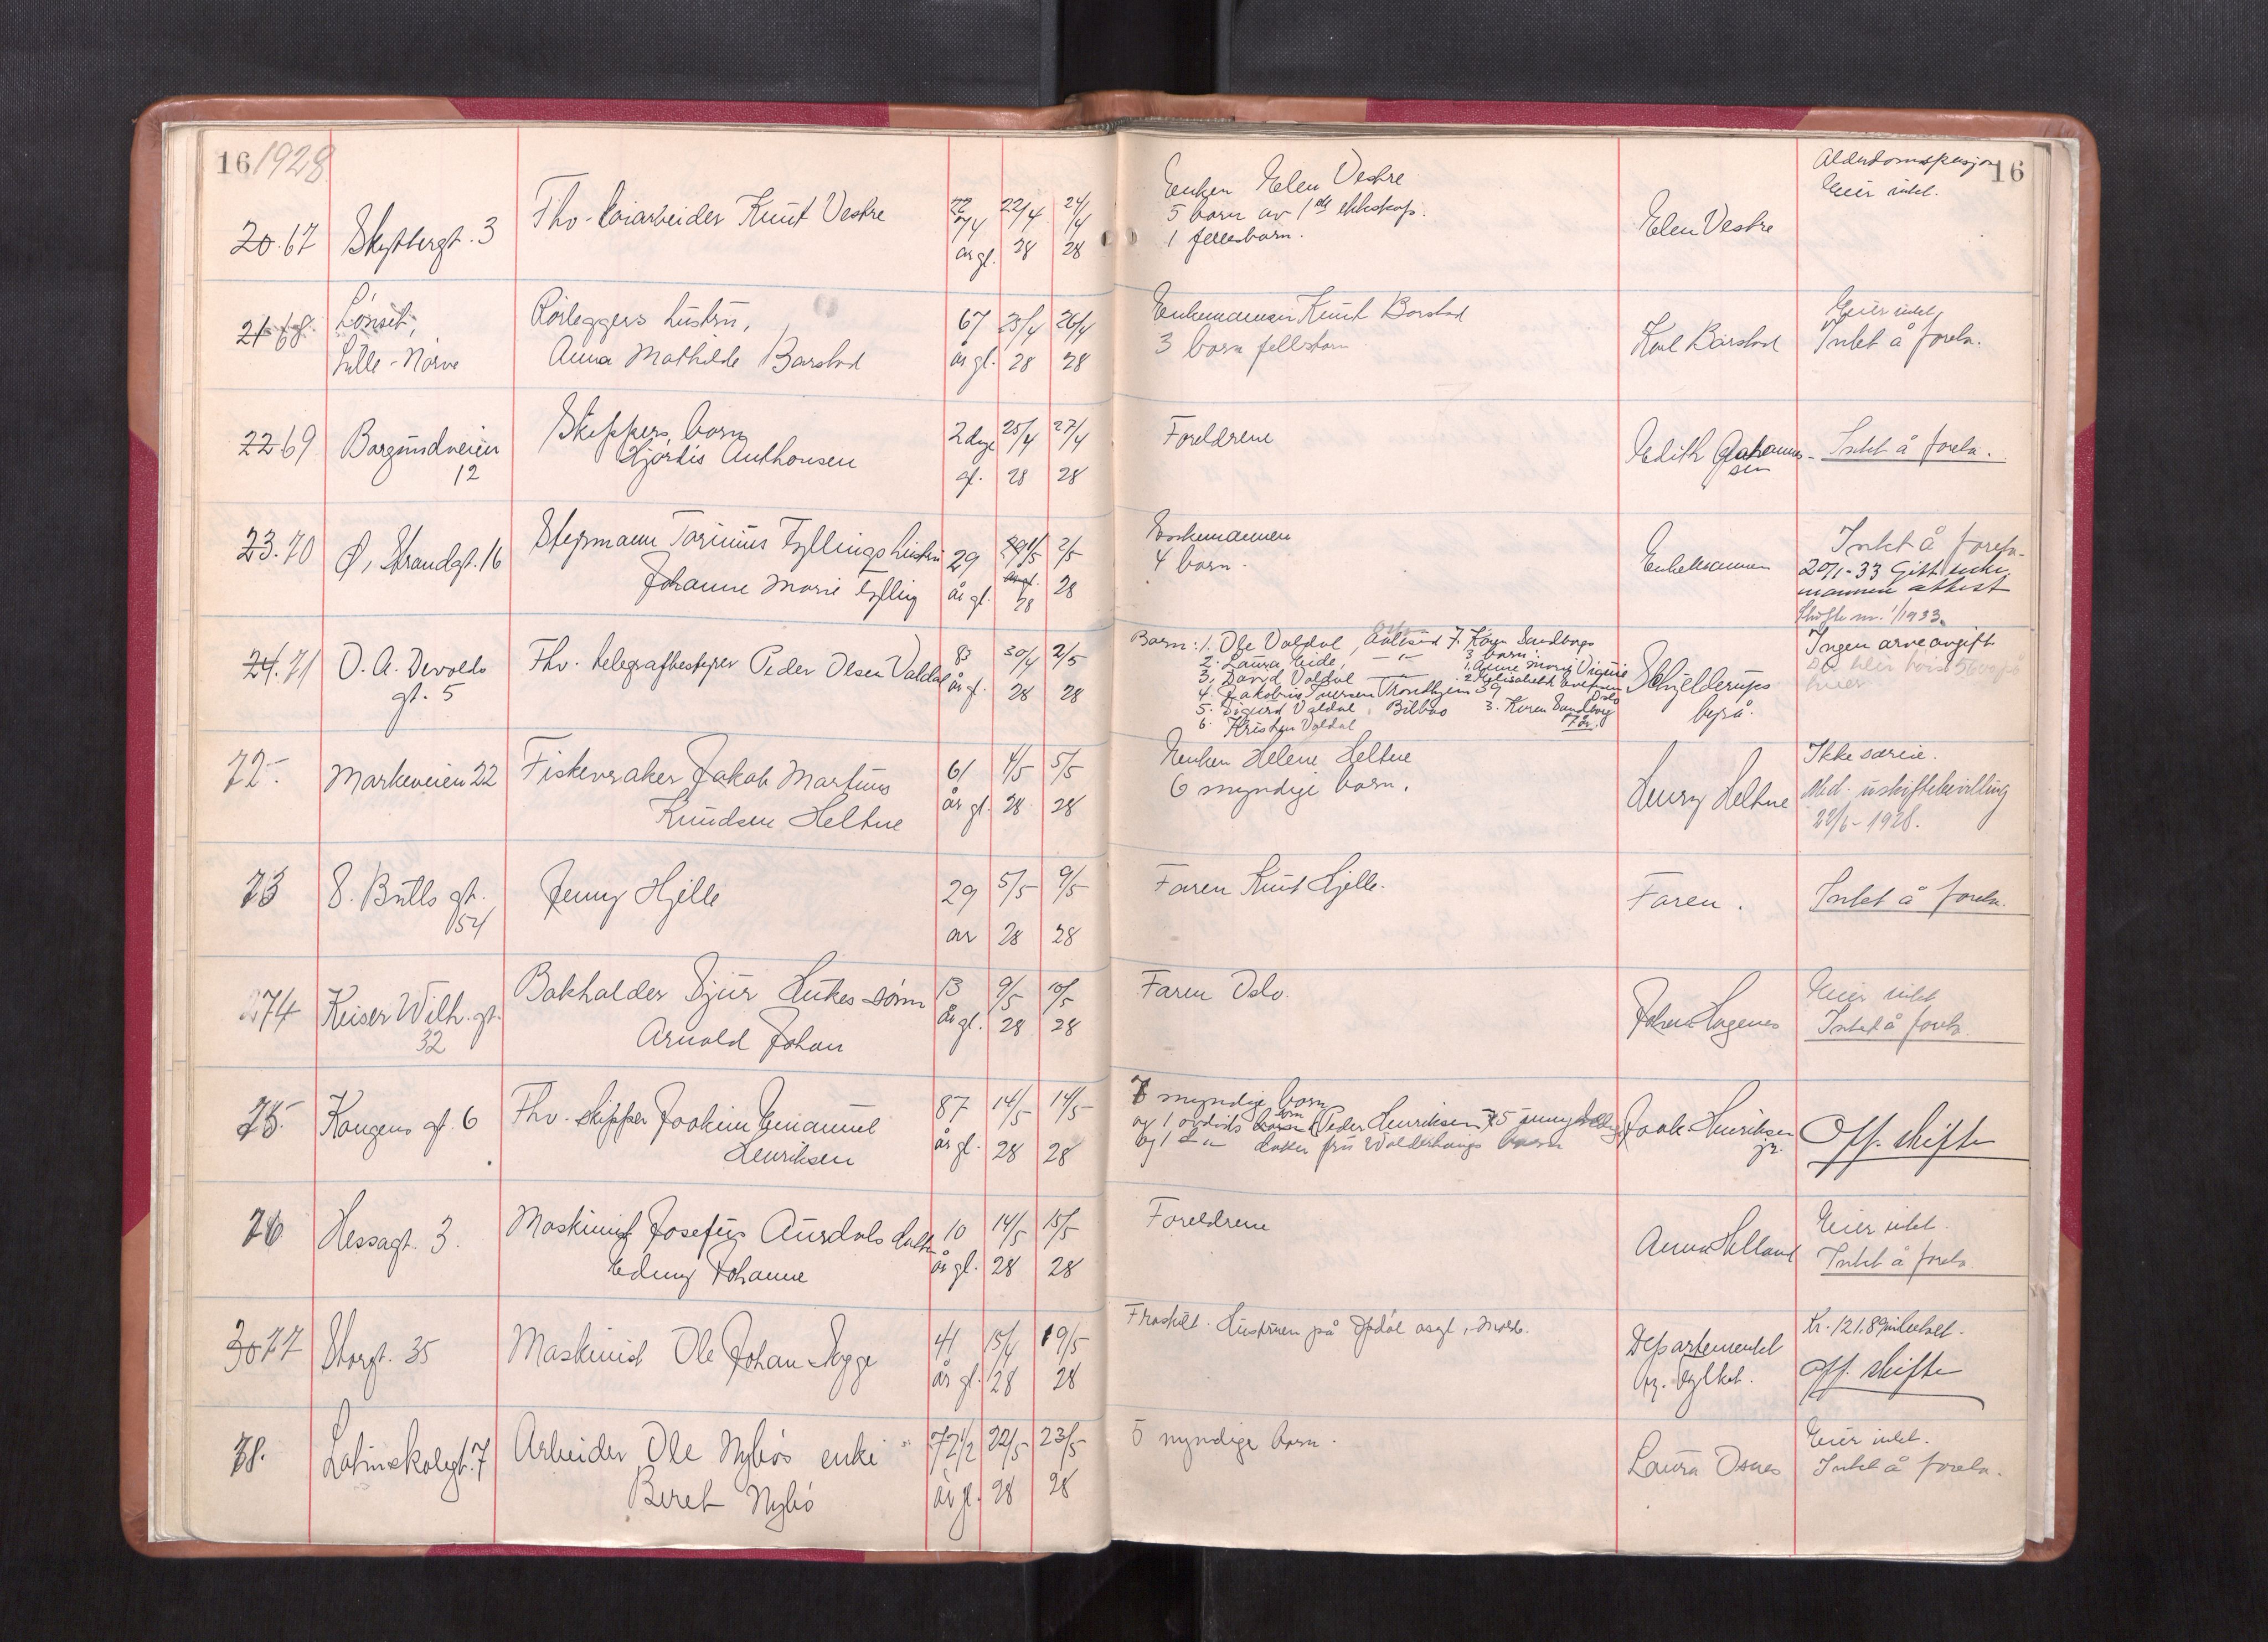 16 1928
16
20. 67 Skytterg. 3 Fhv. Knut Vestre 22/4 24/4
74 år gl. 28 28
Enken Elen Vestre
5 barn av 1ste ekteskap.
1 fellesbarn.
Elen Vestre
Alderdomspensjon
Eier intet.
21 68 Lønset, Lille-Nørve
Rørleggers hustru,
Anna Mathilde Barstad
67 år gl. 25/4 28 26/4 28
Enkemannen Knut Barstad
3 barn fellesbarn
Karl Barstad
Eier intet
Intet å foreta.
22 69 Borgundveien 12
Skippers barn
Hjørdis Anthonsen
2 dage gl. 25/4 28 27/4 28
Foreldrene
Edith Johannessen
Intet å foreta.
23. 70 Ø. Strandgt. 16
Styrmann Fyllings hustru
Johanne Marie Fylling
29 år gl. 1/5 28 2/5 28
Enkemannen
4 barn
Enkemannen
Intet å foreta.
20/1-33 Gitt enke-
mannen attest
Skifte nr. 1/1933.
24. 71 O. A. Devolds gt. 5
Fhv. telegrafbestyrer Peder Olsen Valdal
83 år gl. 30/4 28 2/5 28
Barn: 1. Ole Valdal, Aalesund 7. Karen Sandborgs
2. Laura Eide, — " — 3 barn:
3. David Valdal — " —
4. Jakobine Iversen Trondhjem 39
5. Sigurd Valdal, Bilbao 3. Karen Sandborg
6. Kristen Valdal 17 år.
Schjelderups byrå.
Ingen arveavgift
72. Markeveien 22
Fiskevraker Jakob Martinus
Knudsen Heltne
61 år gl. 4/5 28 5/5 28
Enken Helene Heltne
6 myndige barn.
Henry Heltne
Ikke særeie.
Med. uskiftebevilling
22/6-1928.
73 S. Bulls gt. 54
Jenny Hjelle
29 år 5/5 28 9/5 28
Faren Knut Hjelle.
Faren.
Intet å foreta.
74 Keiser Wilh. gt. 32
Bakhalder Sjur Hukes sønn
Arnold Johan
13 år gl. 9/5 28 10/5 28
Faren Oslo.
Johan Hagenes
Eier intet
Intet å foreta.
75. Kongens gt. 6
Fhv. skipper Joakim Emanuel
Henriksen
87 år gl. 14/5 28 14/5 28
7 myndige barn
og 1 avdøds sønn (Peder Henriksen)
og 1 — " — datter fru Walderhaugs barn
Joak. Henriksen jr.
Off. skifte
76 Hessagt. 3.
Maskinist Josefus Aursdals datter
Edny Johanne
10 år gl. 14/5 28 15/5 28
Foreldrene
Anna Helland
Eier intet.
Intet å foreta
30 77 Storgt. 35
Maskinist Ole Johan Mygge
41 år gl. 15/4 28 19/5 28
Fraskilt. Hustruen på
Departementet
gj. fylket.
Kr. 121.89 innbetalt.
Off. skifte
78. Latinskolegt. 7
Arbeider Ole Nybøs enke
Beret Nybø
72 1/2 år gl. 22/5 28 23/5 28
5 myndige barn.
Laura Osnes
Eier intet.
Intet å foreta.